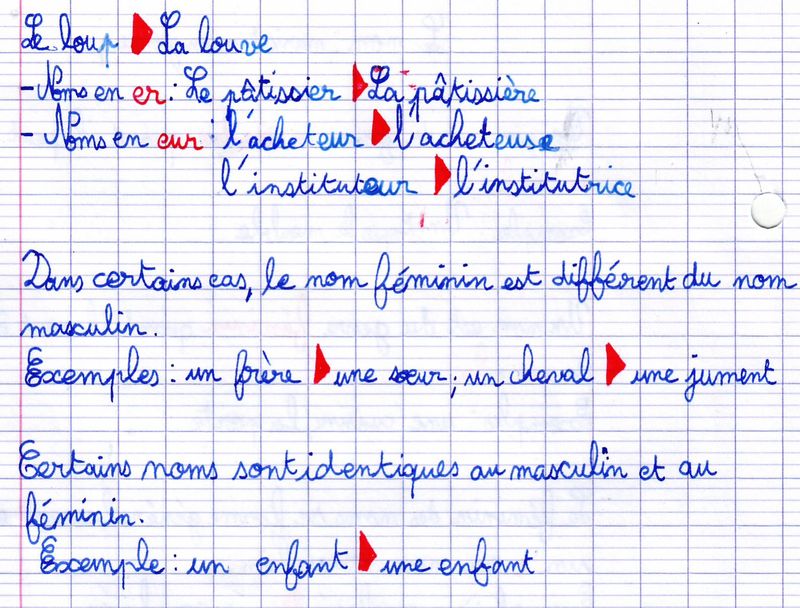 Le loup ▶ La louve
- Noms en er : Le pâtissier ▶ La pâtissière
- Noms en eur : l'acheteur ▶ l'acheteuse
l'instituteur ▶ l'institutrice
Dans certains cas, le nom féminin est différent du nom
masculin.
Exemples : un frère ▶ une sœur ; un cheval ▶ une jument
Certains noms sont identiques au masculin et au
féminin.
Exemple : un enfant ▶ une enfant